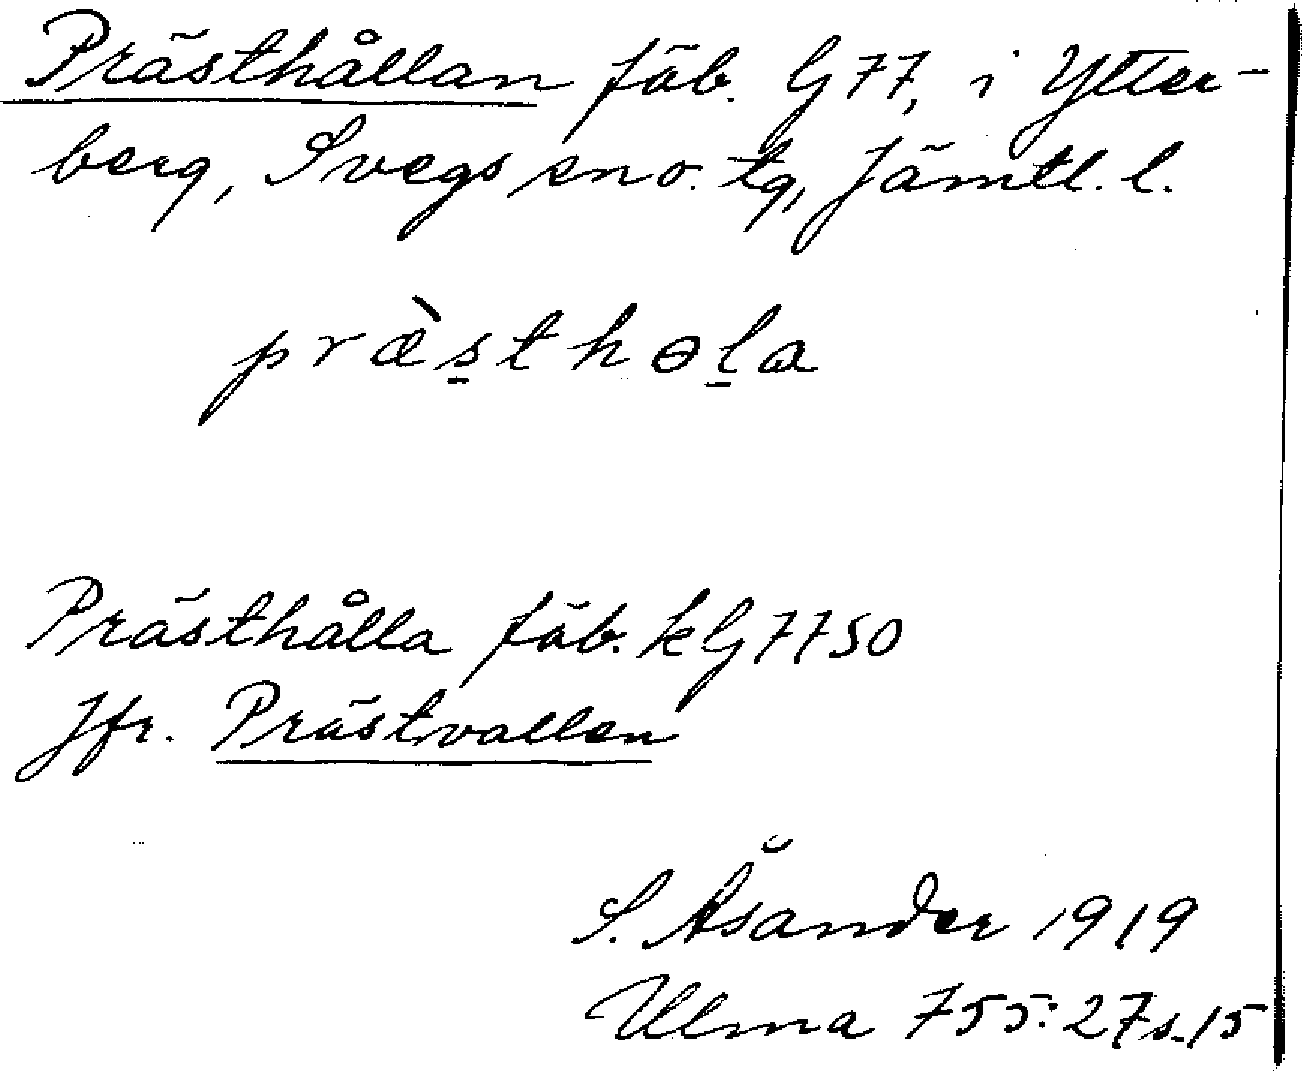 Prästhållan fäb. G77, i Ytter-
berg, Svegs sno. tg, Jämtl. l.
præ̀s̱thɵḻa
Prästhålla fäb. kG77SO
Jfr. Prästvallen
S. Åsander 1919
Ulma 755:27 s.15